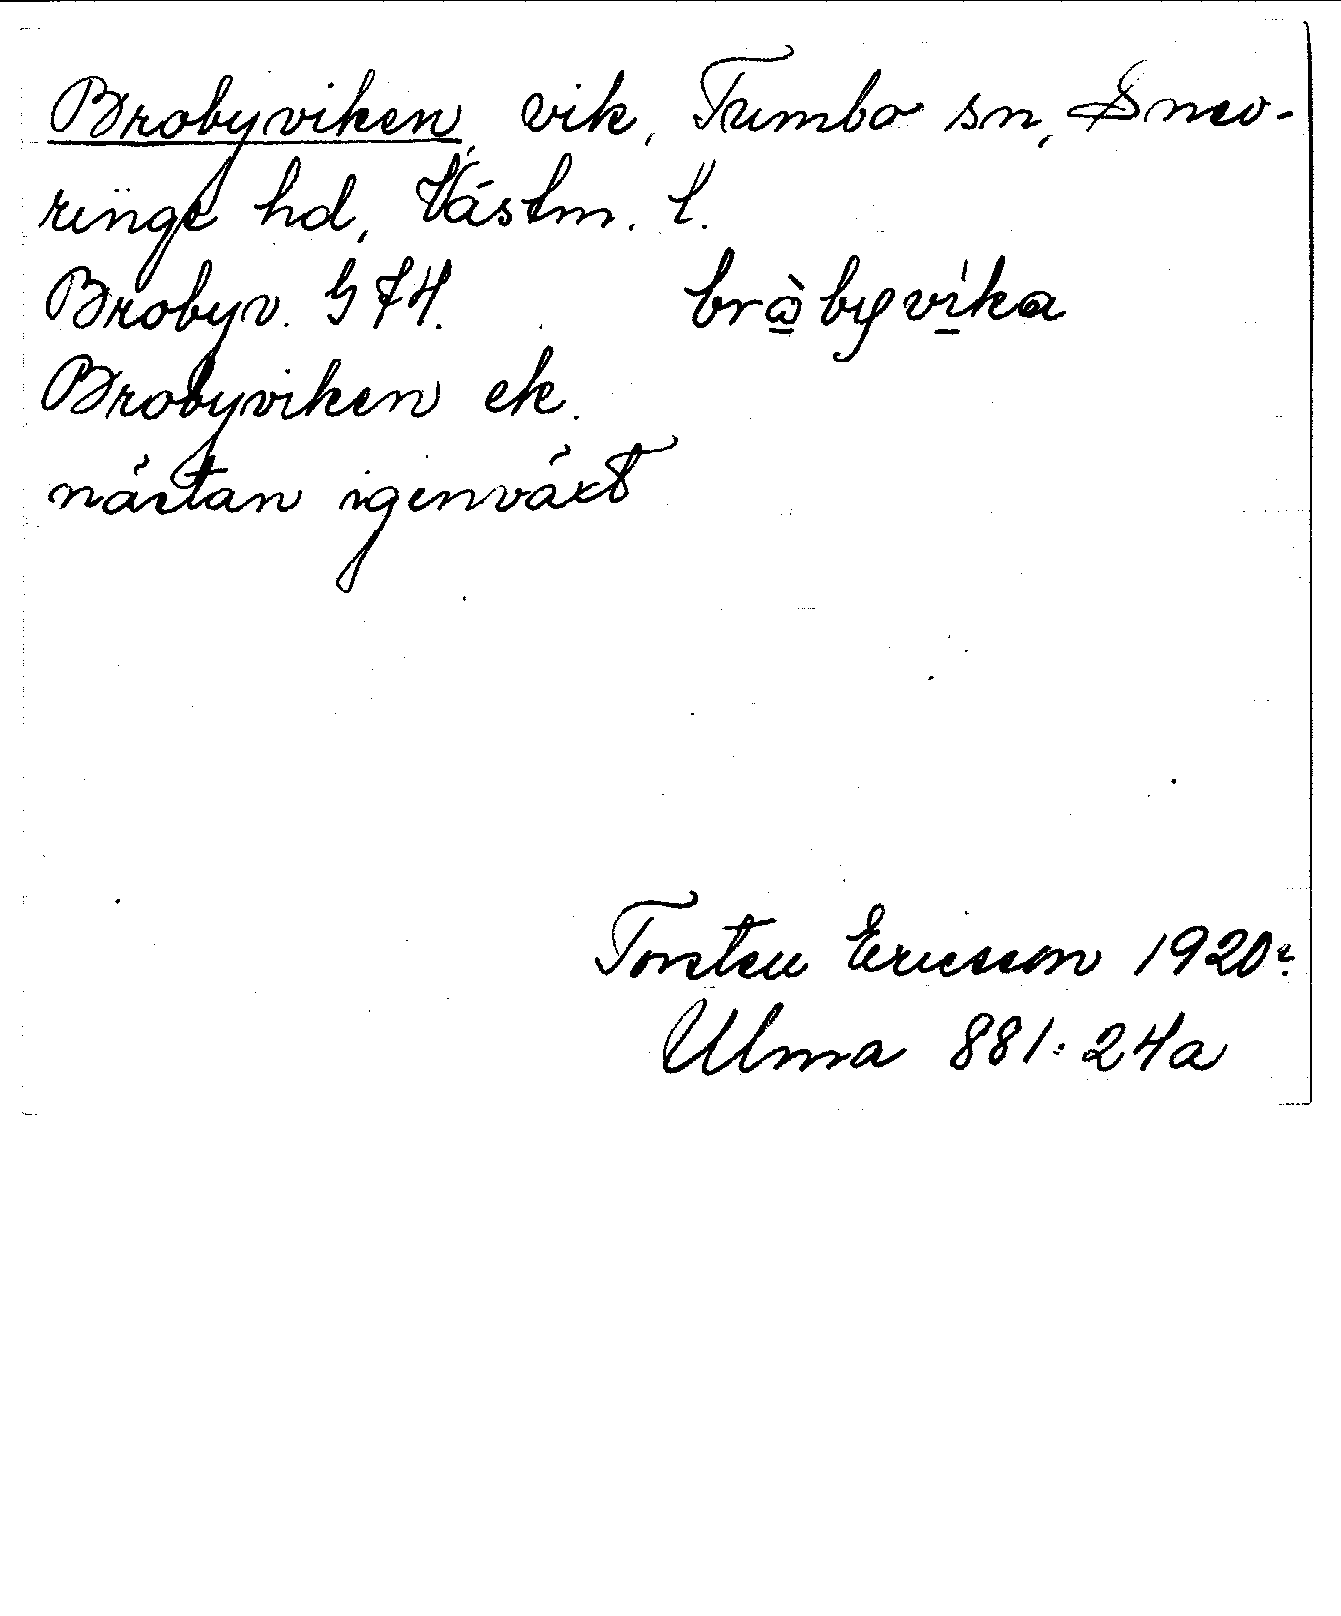 Brobyviken, vik, Tumbo sn, Snev-
ringe hd, Västm. l.
Brobyv. G 74. bròbyvíka
Brobyviken ek.
nästan igenväxt
Torsten Ericsson 1920.
Ulma 881:24a